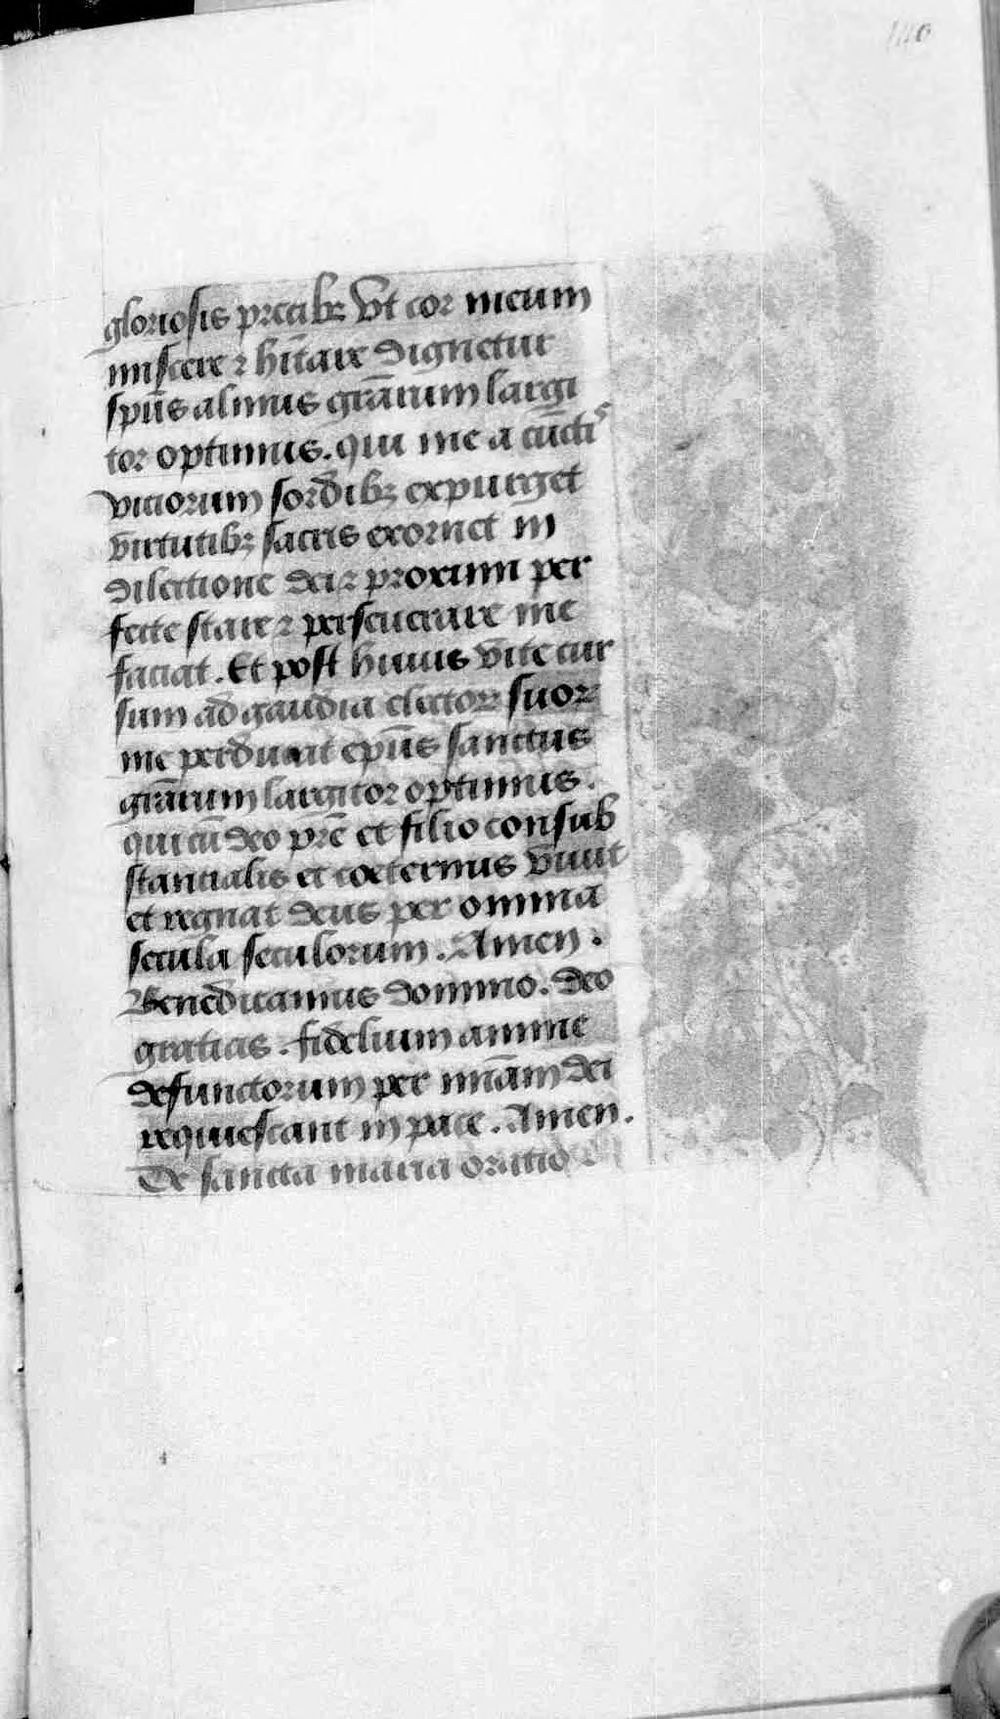 140
gloriosis precibꝫ vt cor meum
inviscere ⁊ hītare dignetur
spūs almus grārum largi
tor optimus. qui me a cūcti⁹
viciorum sordibꝫ expurget
virtutibꝫ sacris exornet in
dilectione dei ⁊ proximi per
fecte stare ⁊ perseuerare me
faciat. Et post huius vite cur
sum ad gaudia electoꝝ suoꝝ
me perducat epūs sanctus
grārum largitor optimus.
qui cū deo prē et filio consub
stancialis et coeternus viuit
et regnat deus per omnia
secula seculorum. Amen.
Benedicamus domino. deo
gratias. fidelium anime
defunctorum per mīam dei
requiescant in pace. Amen.
De sancta maria oratio